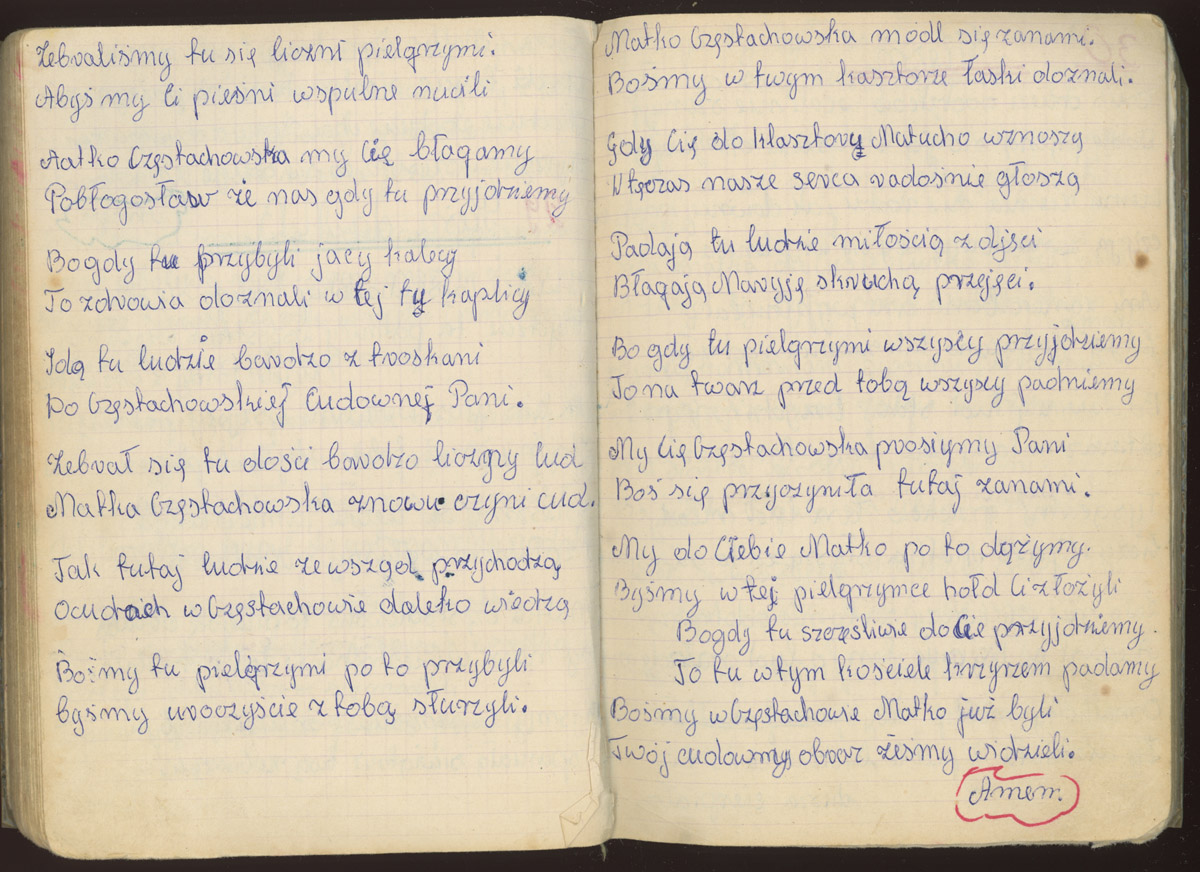 Zebraliśmy tu się liczni pielgrzymi.
Abyśmy Ci pieśni wspulne nucili
Matko Częstachowska my Cię błagamy
Pobłogosław że nas gdy tu przyjdziemy
Bogdy tu przybyli jacy kalecy
To zdrowia doznali w tej tu kaplicy
Idą tu ludzie bardzo z troskani
Do Częstachowskiej Cudownej Pani.
Zebrał się tu dości bardzo liczny lud
Matka Częstachowska znowu czyni cud.
Tak tutaj ludzie zewsząd przychodzą
Ocudach w Częstachowie daleko wiedzą
Bośmy tu pielgrzymi po to przybyli
byśmy uroczyście z tobą słurzyli.
Matko Częstachowska módl się zanami.
Bośmy w twym kasztorze łaski doznali.
Gdy Cię do klasztoru Matucho wznoszą
Wtęczas nasze serca radośnie głoszą
Padają tu ludzie miłością zdjęci
Błagają Maryję skruchą przejęci.
Bo gdy tu pielgrzymi wszyscy przyjdziemy
To na twarz przed tobą wszyscy padniemy
My Cię Częstachowska prosiymy Pani
Boś się przyczyniła tutaj zanami.
My do Ciebie Matko po to dążymy.
Byśmy w tej pielgrzymce hołd Ci złożyli
Bogdy tu szczęśliwie do Cie przyjdziemy.
To tu w tym kościele krzyrzem padamy
Bośmy w Częstachowie Matko już byli
Twój cudowny obraz żeśmy widzieli.
Amen.